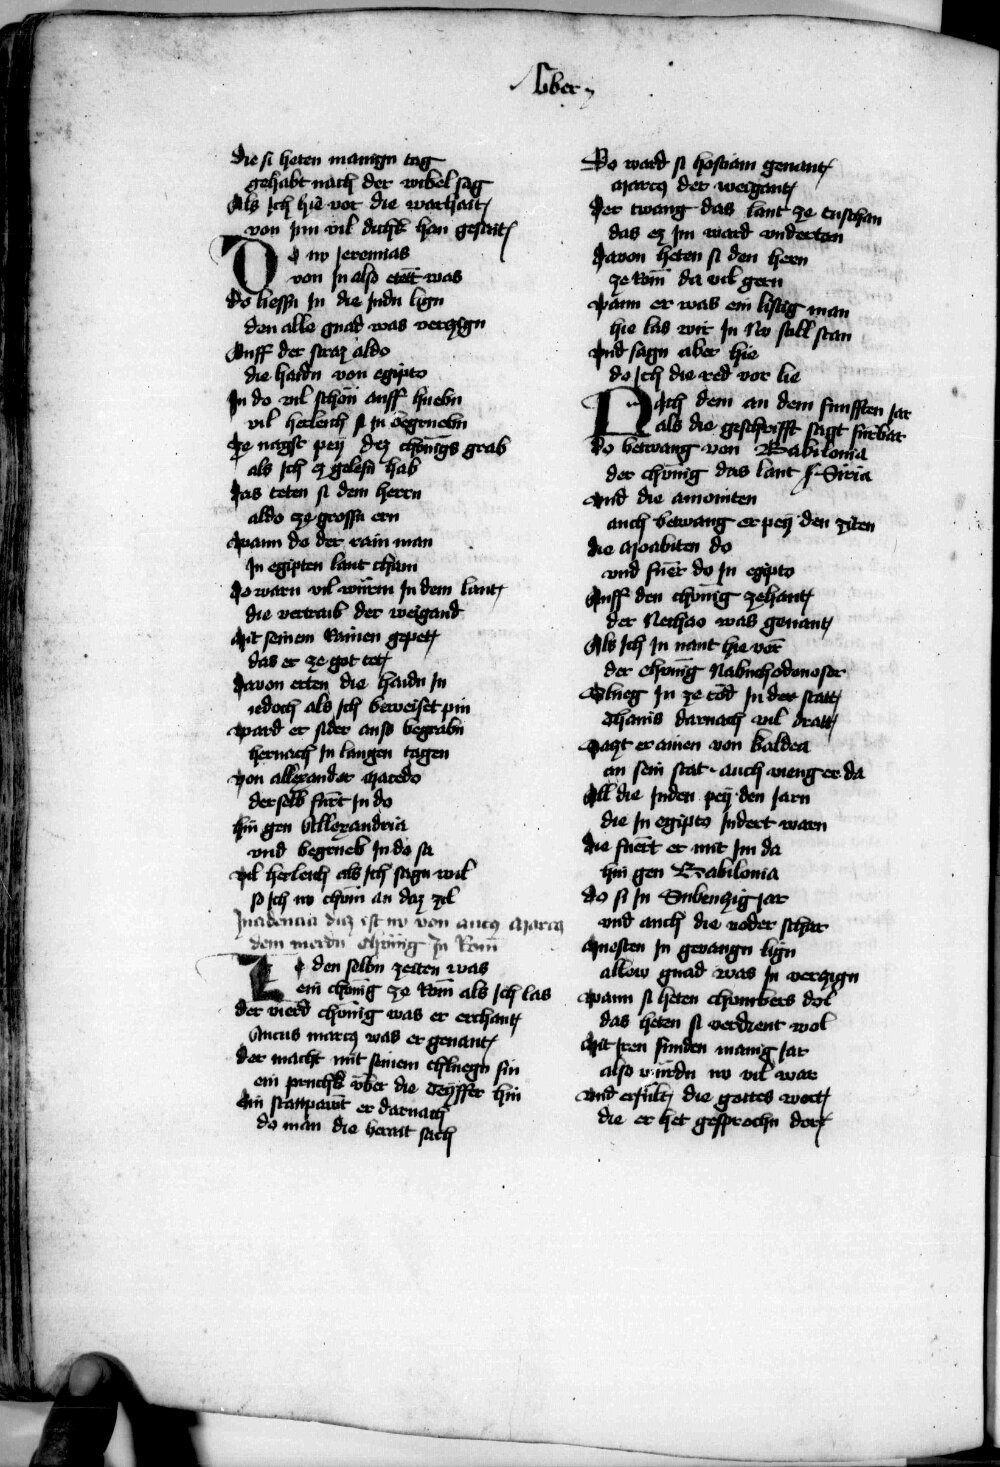 Liber
die si heten manign tag
gehabt nach der wibel sag
Als Ich hie vor die warhait
von Im vil dickh han gesait
Do nv Jeremias
von In also ertött was
do liessn In die Judn lign
den alle gnad was verczign
Auff der straz aldo
die haidn von egipto
In do vil schon auff huebn
vil herleich si In begruebn
Ze nagst pey dez chonigs grab
als Ich ez gelesn hab
das teten si dem herrn
aldo ze grossn ern
wann do der rain man
In egipten lant cham
do warn vil würm In dem lant
die vertraib der weigand
Mit seinem Rainen gepet
das er ze got tet
davon erten die haidn In
iedoch als Ich beweiset pin
ward er sider ausd begrabn
hernach In langen tagen
von allexander macedo
derselb fürt In do
hin gen Allexandria
vnd begrueb In do sa
vil herleich als Ich sagn wil
so Ich nv chom an daz zil
Incidencia daz ist nv von ancus Marcus
dem vierdn chonig zu Rom
Ze den selbn zeiten was
ein chonig ze Rom als Ich las
der vierd chonig was er erchant
Ancus marcus was er genant
der macht mit seinem chluegn sin
ein prukh vber die Teyffer hin
ein stat pawt er darnach
do man die berait sach
Do ward si hostiam genant
Marcus der weigant
der twang das lant ze tuschan
das ez Im ward vndertan
davon heten si den hern
ze Rom da vil gern
wann er was ein listig man
hie las wir In Nv still stan
vnd sagn aber hie
do Ich die red vor lie
Nach dem an dem funfften Jar
als die geschrifft sagt fürbar
do betwang von Babilonia
der chonig das lant Siria
vnd die amoniten
auch betwang er pey den ziten
die Moabiten do
vnd fuer do In egipto
Auff den chonig zehant
der Nechao was genant
Als Ich In nant hie vor
der chonig Nabuchodonosor
Slueg In ze tod In der statt
Thanis darnach vil dratt
Saczt er ainen von kaldea
an sein stat auch vieng er da
All die Juden pey den Jarn
die In egipto Indert warn
die fuert er mit Im da
hin gen Babilonia
do si In Sibenczig Jar
vnd auch die voder schar
Muesten In gevangn lign
allew gnad was In verczign
wann si heten chombers dol
das heten si verdient wol
Mit Iren sunden manig Jar
also wurdn nv vil war
vnd erfult die gottes wort
die er het gesprochn dort